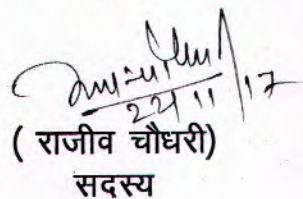 22/11/17
( राजीव चौधरी)
सदस्य